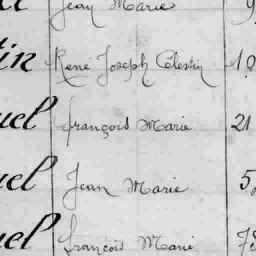 Jean Marie
tin René Joseph Célestin
uel françois Marie 21
uel Jean Marie
uel françois Marie